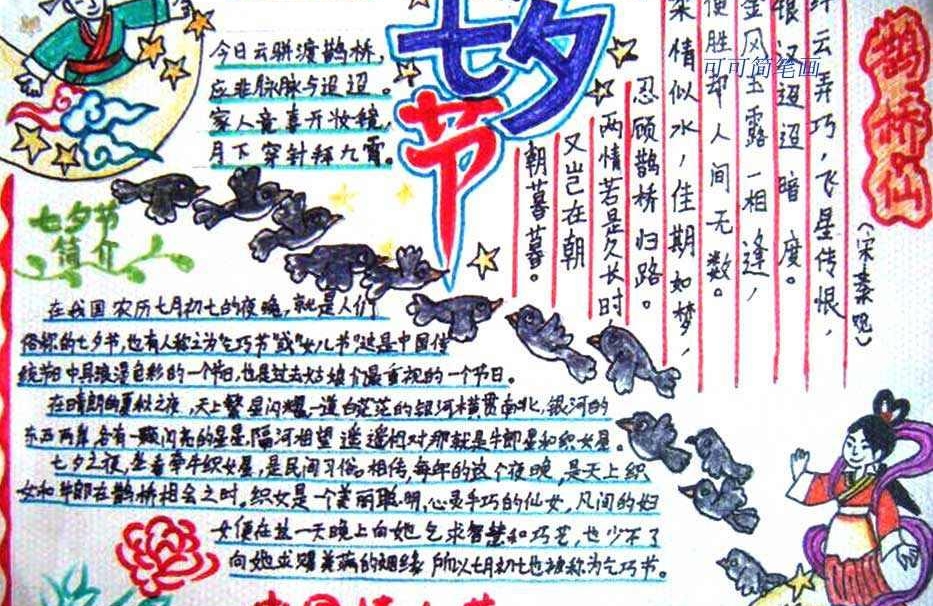 今日云骈渡鹊桥，
应非脉脉与迢迢。
家人竟喜开妆镜，
月下穿针拜九霄。
七夕
节
鹊桥仙
（宋秦观）
云弄巧，飞星传恨，
银汉迢迢暗度。
金风玉露一相逢，
便胜却人间无数。
柔情似水，佳期如梦，
忍顾鹊桥归路。
两情若是久长时
又岂在朝
朝暮暮。
可可简笔画
七夕节
简介
在我国农历七月初七的夜晚，就是人们
俗称的七夕节，也有人称之为"乞巧节"或"女儿节"这是中国传
统节日中具浪漫色彩的一个节日，也是过去姑娘们最重视的一个节日。
在晴朗的夏秋之夜，天上繁星闪耀，一道白茫茫的银河横贯南北，银河的
东西两岸，各有一颗闪亮的星星，隔河相望 遥遥相对那就是牛郎星和织女星。
七夕之夜，坐看牵牛织女星，是民间习俗。相传，每年的这个夜晚，是天上织
女和牛郎在鹊桥相会之时。织女是一个美丽聪明，心灵手巧的仙女，凡间的妇
女便在这一天晚上向她乞求智慧和巧艺，也少不了
向她求赐美满的姻缘 所以七月初七也被称为乞巧节。